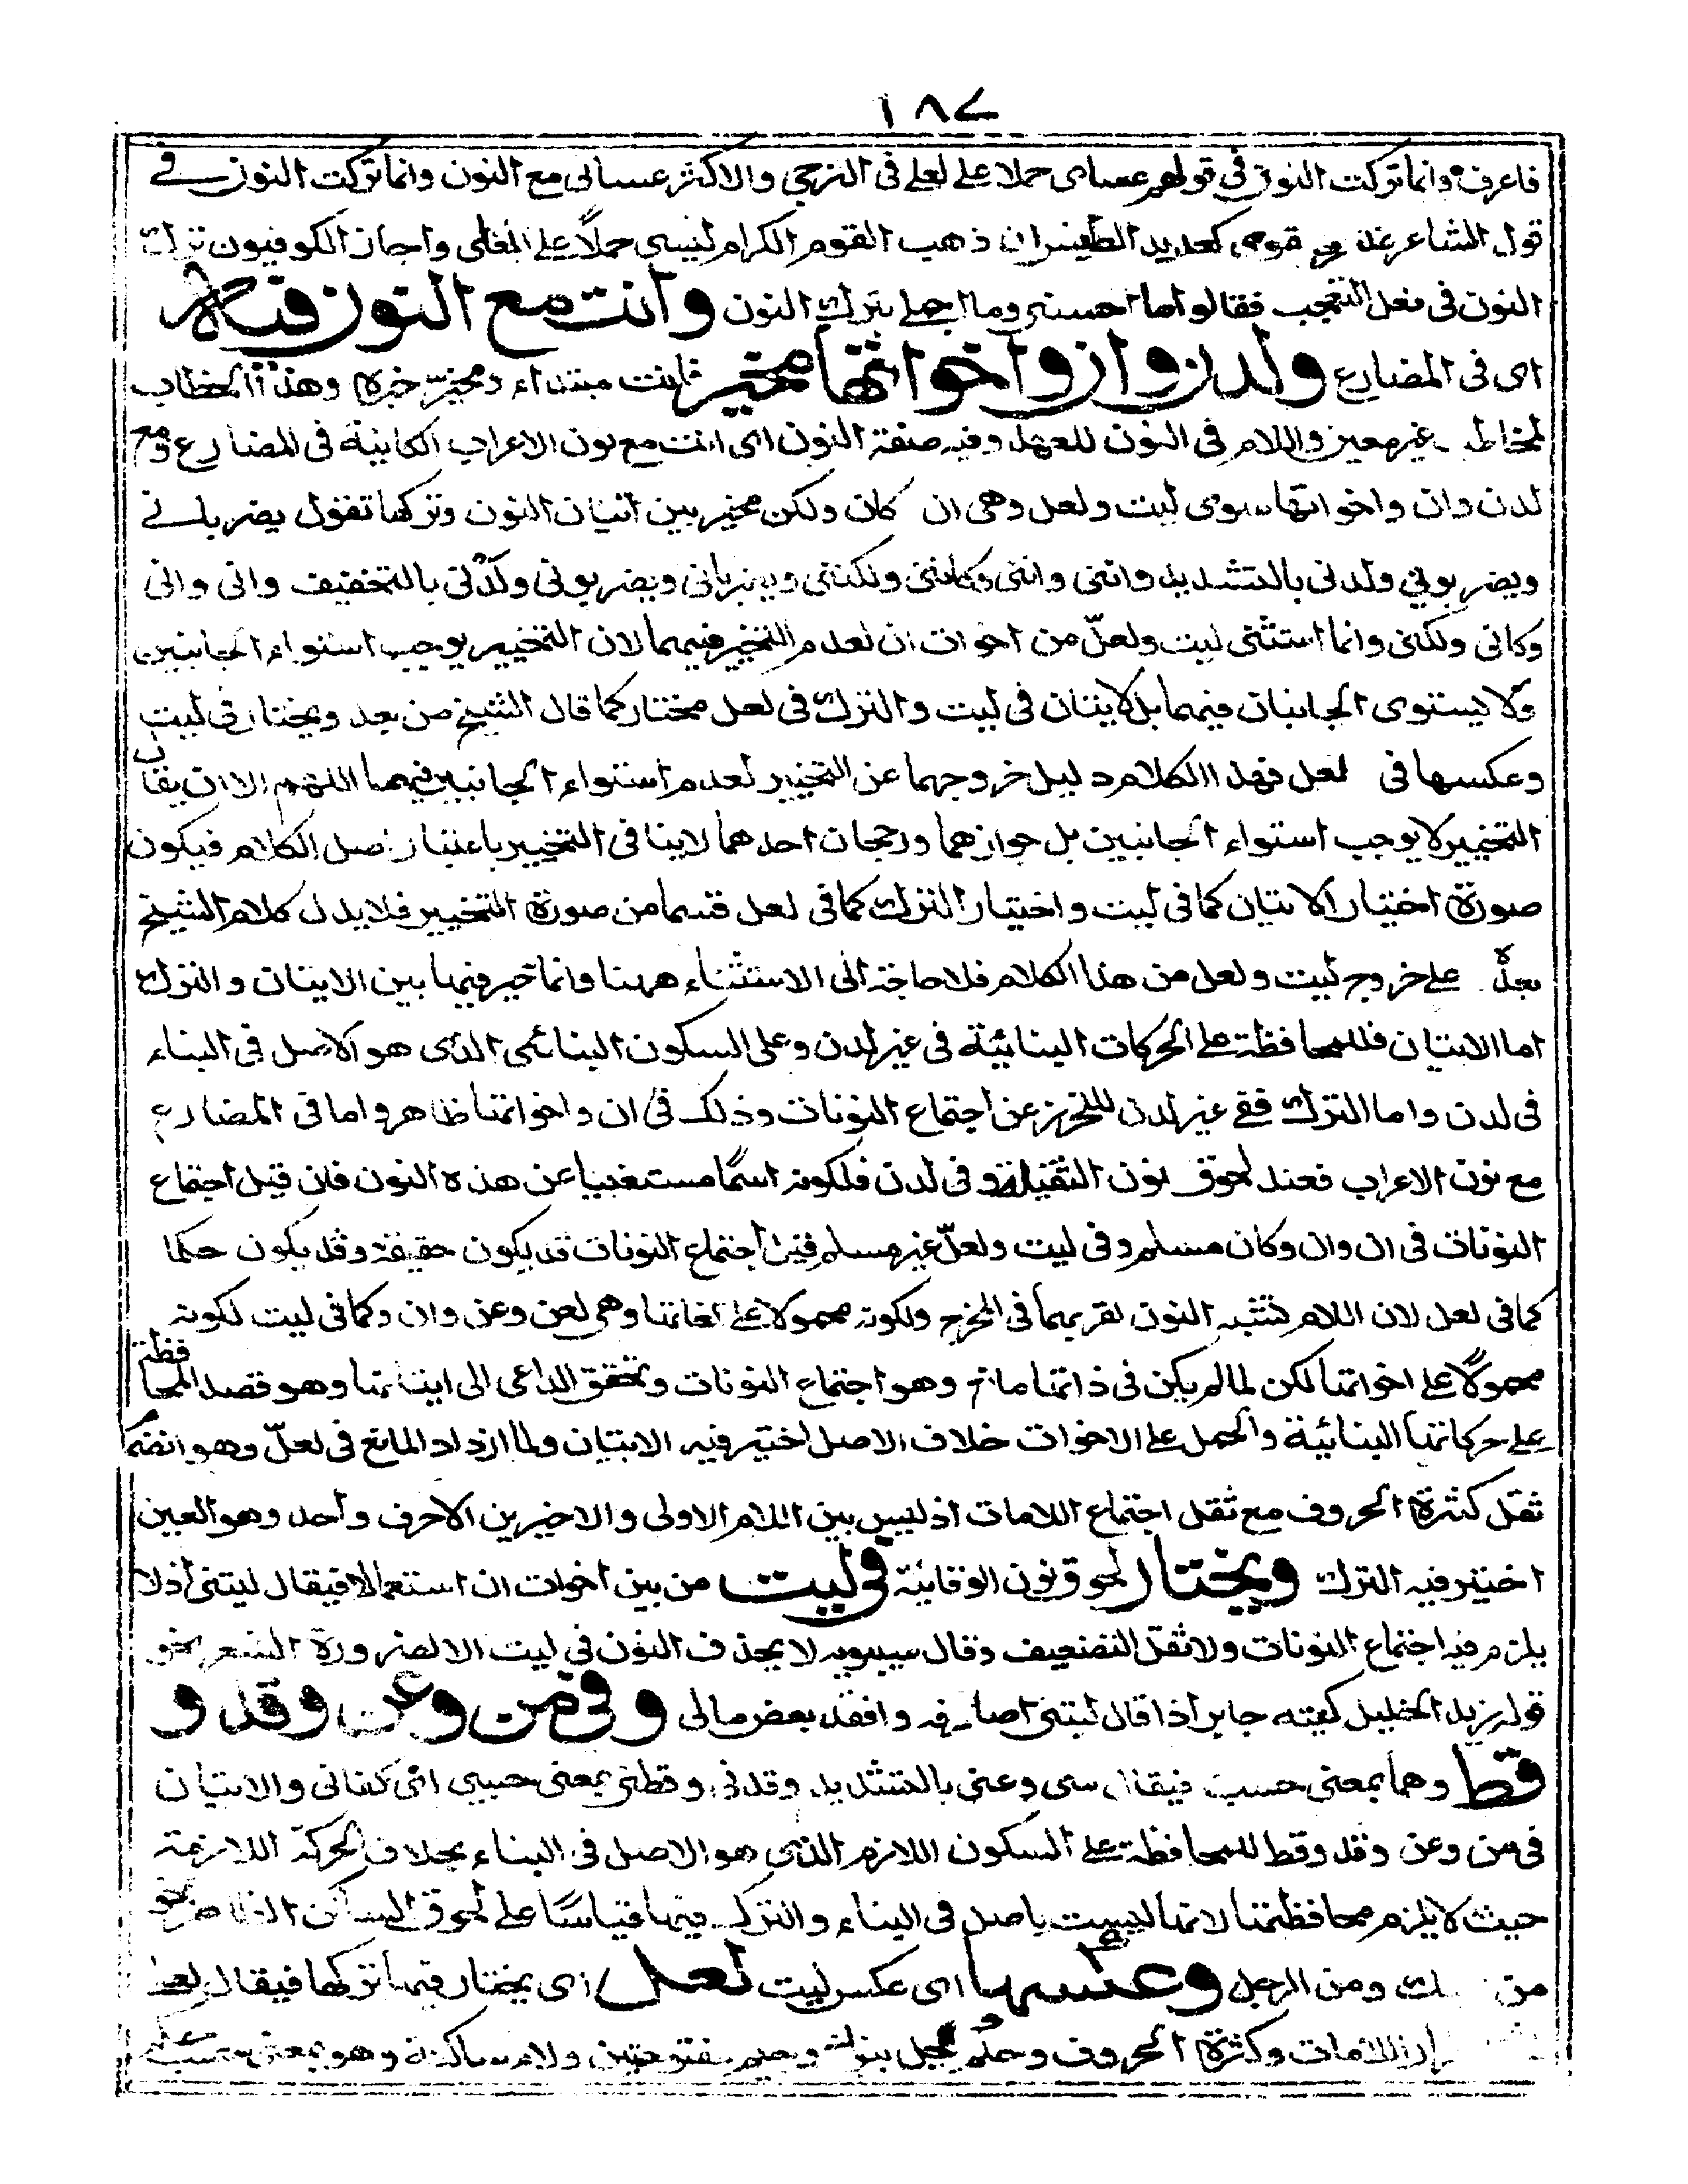 ١٨٧
فاعرفه وانما تركت النون فى قولهم عساى حملا على لعلى فى الترجى والاكثر عسانى مع النون وانما تركت النون فى
قول الشاعر قومى كعديد الطيس اذ ذهب القوم الكرام ليسى حملاً على المعنى واجاز الكوفيون ترك
النون فى فعل التعجب فقالوا ما احسنى وما اجملى بترك النون وانت مع النون فيه
اى فى المضارع ولدن وان واخواتها مخير فانت مبتداء ومخيّر خبره وهذا الخطاب
لمخاطب غير معين واللام فى النون للعهد وفيه صفة النون اى انت مع نون الاعراب الكاينة فى المضارع ومع
لدن وان واخواتها سوى ليت ولعل وهى ان كان ولكن مخير بين اتيان النون وتركها تقول يضربانى
ويضربونى ولدنى بالتشديد واننى وانني وكاننى ولكننى ويضربانى ويضربونى ولدنى بالتخفيف وانى وانى
وكانى ولكنى وانما استثنى ليت ولعلّ من اخوات ان لعدم التخيير فيهما لان التخيير يوجب استواء الجانبين
ولا يستوى الجانبان فيهما بل الاتيان فى ليت والترك فى لعل مختار كما قال الشيخ من بعد ويختار فى ليت
وعكسها فى لعل فهذا الكلام دليل خروجهما عن التخيير لعدم استواء الجانبين فيهما اللهم الا ان يقال
التخيير لا يوجب استواء الجانبين بل جوازهما ورجحان احدهما لا ينافى التخيير باعتبار اصل الكلام فيكون
صورة اختيار الاتيان كما فى ليت واختيار الترك كما فى لعل قسما من صورة التخيير فلا يدل كلام الشيخ
بعده على خروج ليت ولعل من هذا الكلام فلا حاجة الى الاستثناء ههنا وانما خير فيها بين الاتيان والترك
اما الاتيان فللمحافظة على الحركات البنائية فى غير لدن وعلى السكون البنائى الذى هو الاصل فى البناء
فى لدن واما الترك ففى غير لدن للتحرز عن اجتماع النونات وذلك فى ان واخواتها ظاهر واما فى المضارع
مع نون الاعراب فعند لحوق نون الثقيلة وفى لدن فلكونه اسمًا مستغنيا عن هذه النون فان قيل اجتماع
النونات فى ان وان وكان مسلم وفى ليت ولعلّ غير مسلم قيل اجتماع النونات قد يكون حقيقة وقد يكون حكما
كما فى لعل لان اللام تشبه النون لقربهما فى المخرج ولكونه محمولا على لغاتها وهى لعن وعن وان وكما فى ليت لكونه
محمولاً على اخواتها لكن لما لم يكن فى ذاتها مانع وهو اجتماع النونات وتحقق الداعى الى اتيانها وهو قصد المحافظة
على حركاتها البنائية والحمل على الاخوات خلاف الاصل اختير فيه الاتيان ولما ازداد المانع فى لعلّ وهو انضمام
ثقل كثرة الحروف مع ثقل اجتماع اللامات اذ ليس بين اللام الاولى والاخيرين الا حرف واحد وهو العين
اختير فيه الترك ويختار لحوق نون الوقاية فى ليت من بين اخوات ان استعمالا فيقال ليتنى اذ لا
يلزم فيه اجتماع النونات ولا ثقل التضعيف وقال سيبويه لا يحذف النون فى ليت الا لضرورة الشعر نحو
قوله زيد الخليل كمنية جابر اذ قال ليتى اصادفه وافقد بعض مالى وفى من وعن وقد و
قط وهما بمعنى حسب فيقال منى وعنى بالتشديد وقدنى وقطنى بمعنى حسبى اى كفانى والاتيان
فى من وعن وقد وقط للمحافظة على السكون اللازم الذى هو الاصل فى البناء بخلاف الحركة اللازمة
حيث لا يلزم محافظتها لانها ليست باصل فى البناء والترك فيها قياسًا على لحوق الساكن نحو
من ومن الرجل وعكسها اى عكس ليت لعل اى يختار فيها تركها فيقال لعلى
اللامات وكثرة الحروف وحمل بجل وجيم مفتوحتين ولام ساكنة وهو بمعنى حسب